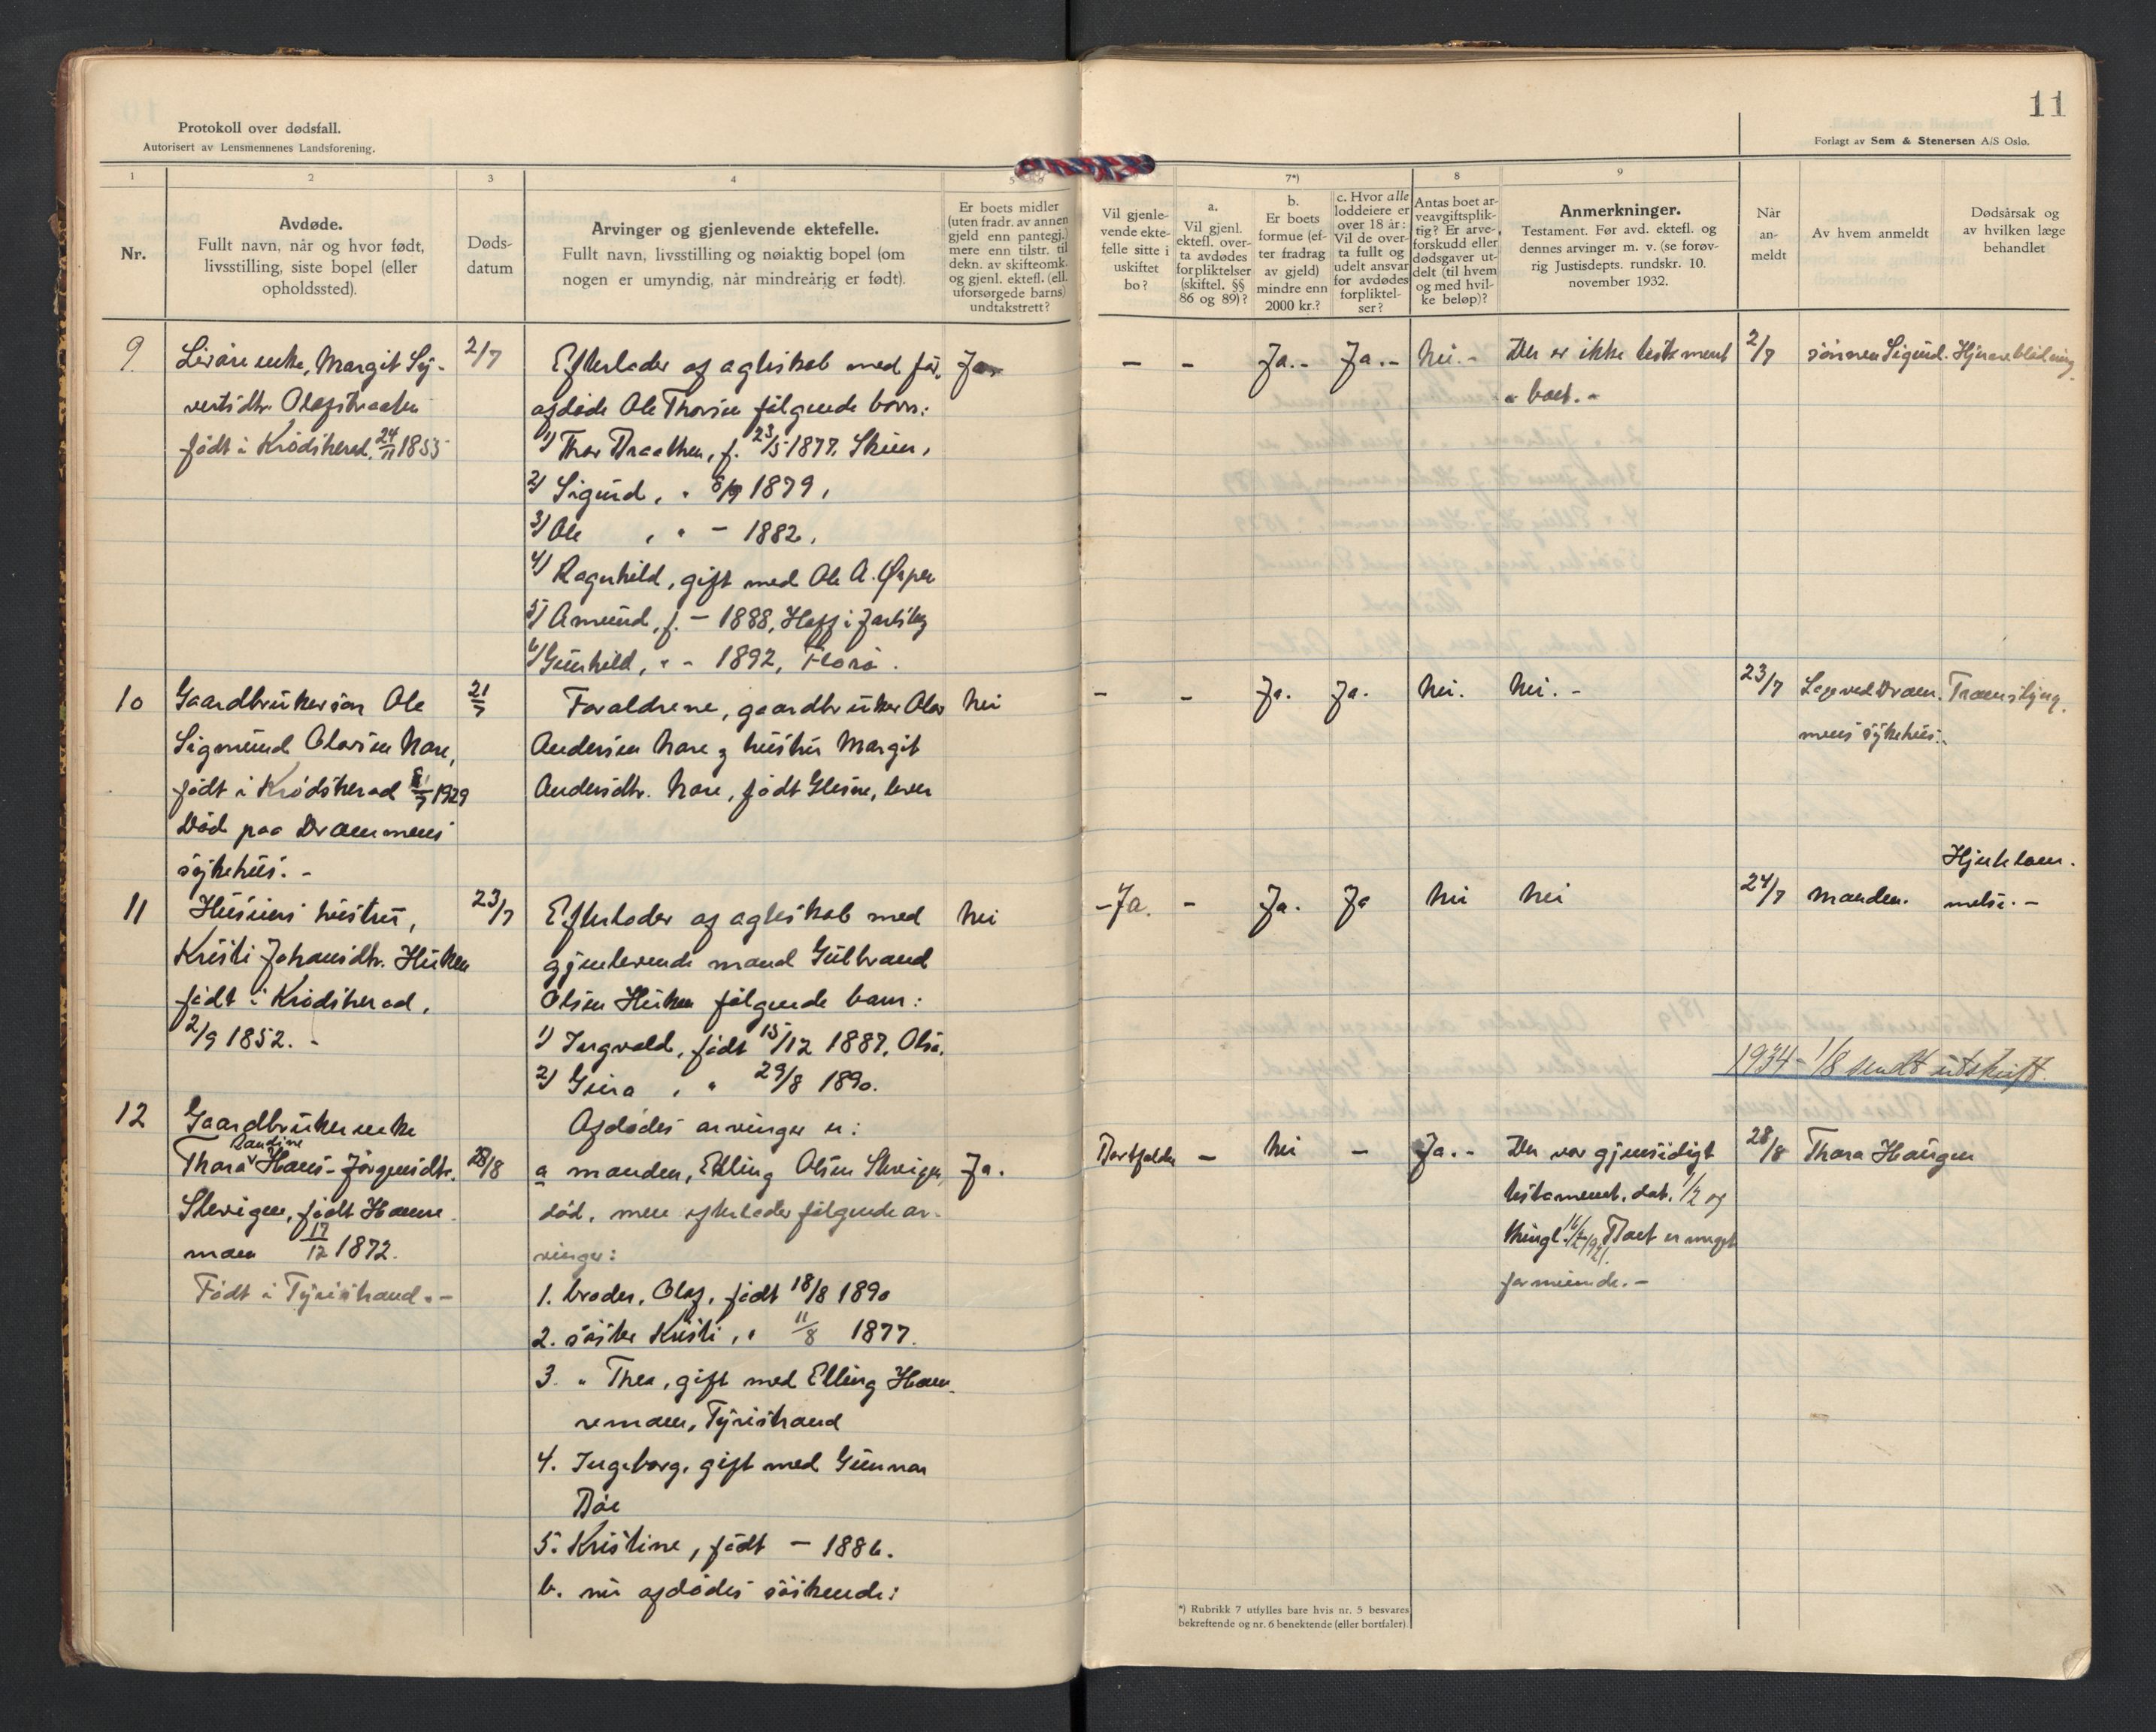 11
Protokoll over dødsfall.
Autorisert av Lensmennenes Landsforening.
Forlagt av Sem & Stenersen A/S Oslo.
1
2
3
4
5
7*)
8
9
Nr.
Avdøde.
Fullt navn, når og hvor født,
livsstilling, siste bopel (eller
opholdssted).
Døds-
datum
Arvinger og gjenlevende ektefelle.
Fullt navn, livsstilling og nøiaktig bopel (om
nogen er umyndig, når mindreårig er født).
Er boets midler
(uten fradr. av annen
gjeld enn pantegj.)
mere enn tilstr. til
dekn. av skifteomk.
og gjenl. ektef. (ell.
uforsørgede barns)
undtakstrett?
Vil gjenle-
vende ekte-
felle sitte i
uskiftet
bo?
a.
Vil gjenl.
ektefl. over-
ta avdødes
forpliktelser
(skiftel. §§
86 og 89)?
b.
Er boets
formue (ef-
ter fradrag
av gjeld)
mindre enn
2000 kr.?
c. Hvor alle
loddeiere er
over 18 år:
Vil de over-
ta fullt og
udelt ansvar
for avdødes
forpliktel-
ser?
Antas boet ar-
veavgiftsplik-
tig? Er arve-
forskudd eller
dødsgaver ut-
delt (til hvem
og med hvil-
ke beløp)?
Anmerkninger.
Testament. Før avd. ektefl. og
dennes arvinger m. v. (se forøv-
rig Justisdepts. rundskr. 10.
november 1932.
Når
an-
meldt
Av hvem anmeldt
Dødsårsak og
av hvilken læge
behandlet
9.
Livøreenke, Margit Sy-
vertsdtr. Olafsbraaten
født i Krødsherad 24/11 1855
2/7
Efterlader af agteskab med før
afdøde Ole Thorsen følgende børn:
1) Thor Braathen, f. 23/5 1877, Skien,
2) Sigurd, " 8/9 1879,
3) Ole , " - 1882,
4) Ragnhild, gift med Ole A. Ørpen
5) Amund, f. - 1888, Hoff i Jarlsbg
6) Gunhild, " - 1892, Florø.
Ja.
-
-
Ja.-
Ja.-
Nei.-
Der er ikke testament
i boet.-
2/7
sønnen Sigurd.
Hjerneblødning.
10
Gaardbrukersøn Ole
Sigmund Olavsen Nare,
født i Krødsherad 8/7 1929
Død paa Drammens
sykehus. -
21/7
Foraldrene, gaardbruker Olav
Andersen Nare g hustru Margit
Andersdtr. Nare, født Glesne, lever
Nei
-
-
Ja.
Ja.
Nei.
Nei. -
23/7
Lege ved Dram.
mens sykehus.
11
Husmans hustru,
Kristi Johansdtr. Heiken
født i Krødsherad,
2/9 1852. -
23/7
Efterlader af agteskab med
gjenlevende mand Gulbrand
Olsen Heiken følgende barn:
1) Ingvald, født 15/12 1887,
2) Gina , " 29/8 1890.
Nei
- Ja.
-
Ja.
Ja
Nei
Nei
24/7
Manden.
Hjertelam.
melse. -
1934 - 1/8 sendt utskrift.
12
Gaardbrukerenke
Thora Randine Hans-Jørgensdtr.
Slevigen, født Hamre
moen 17/12 1872.
Født i Tyristrand. -
28/8
Afdødes arvinger er:
a manden, Elling Olsen Slevigen,
død, men efterlader følgende ar-
vinger:
1. broder, Olaf, født 18/8 1890
2. søster Kristi, " 11/8 1877.
3. " Thea, gift med Elling Ham-
remoen, Tyristrand
4. Ingeborg, gift med Gunnar
Bøe
5. Kristine, født - 1886.
b. nu afdødes søskende:
Ja.
Bortfalder
-
Nei
-
Ja. -
Der var gjensidigt
testament, dat. 1/2 og
thingl. 16/2 1921. Boet er meget
formuende. -
28/8
Thora Haugen
*) Rubrikk 7 utfylles bare hvis nr. 5 besvares
bekreftende og nr. 6 benektende (eller bortfaler)